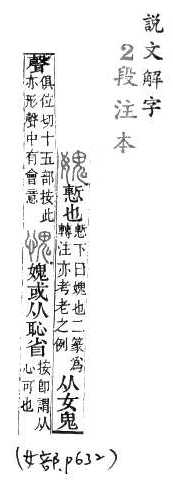 說文解字
2段注本
媿慙也慙下曰媿也二篆為
轉注亦考老之例从女鬼
聲俱位切十五部按此
亦形聲中有會意愧媿或从恥省按即謂从
心可也
(女部.p632)